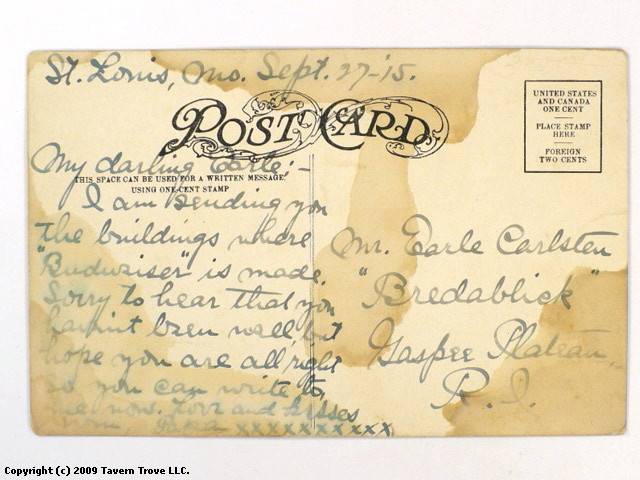 St. Louis, Mo. Sept. 27-'15.
POST CARD
UNITED STATES
AND CANADA
ONE CENT
PLACE STAMP
HERE
FOREIGN
TWO CENTS
My darling Earle:-
THIS SPACE CAN BE USED FOR A WRITTEN MESSAGE,
USING ONE-CENT STAMP
I am sending you
the buildings where
"Budwiser" is made.
Sorry to hear that you
hav'nt been well, but
hope you are all right
so you can write to
me now. Love and kisses
from xxxxxxxxxx
Mr. Earle Carlsten
"Bredablick"
Gaspee Plateau
R.I.
Copyright (c) 2009 Tavern Trove LLC.